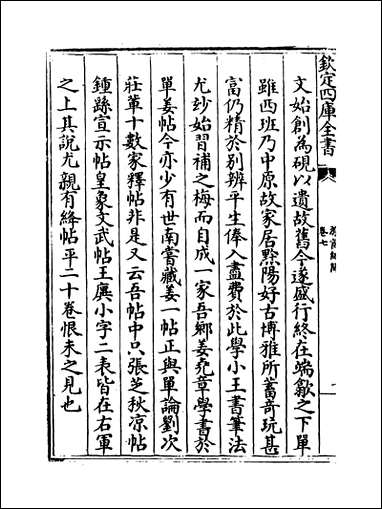 欽定四庫全書
卷七
文始創為硯以遺故舊今遂盛行終在端歙之下單
雖西班乃中原故家居黟陽好古博雅所蓄奇玩甚
富仍精於别辨平生俸入盡費於此學小王書筆法
尤妙始習補之梅而自成一家吾鄉姜堯章學書於
單姜帖今亦少有世南嘗藏姜一帖正與單論劉次
莊輩十數家釋帖非是又云吾帖中只張芝秋涼帖
鍾繇宣示帖皇象文武帖王廙小字二表皆在右軍
之上其說尤親有絳帖平二十卷恨未之見也